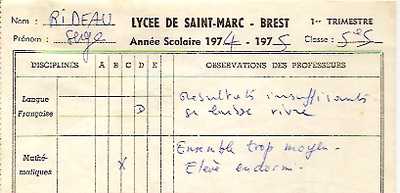 Nom : RIDEAU LYCEE DE SAINT-MARC - BREST 1er TRIMESTRE
Prénom : Serge Année Scolaire 1974 - 1975 Classe : 5e5
DISCIPLINES A B C D E OBSERVATIONS DES PROFESSEURS
Langue Française D Résultats insuffisants
se laisse vivre
Mathé-
matiques X Ensemble trop moyen -
Elève endormi -